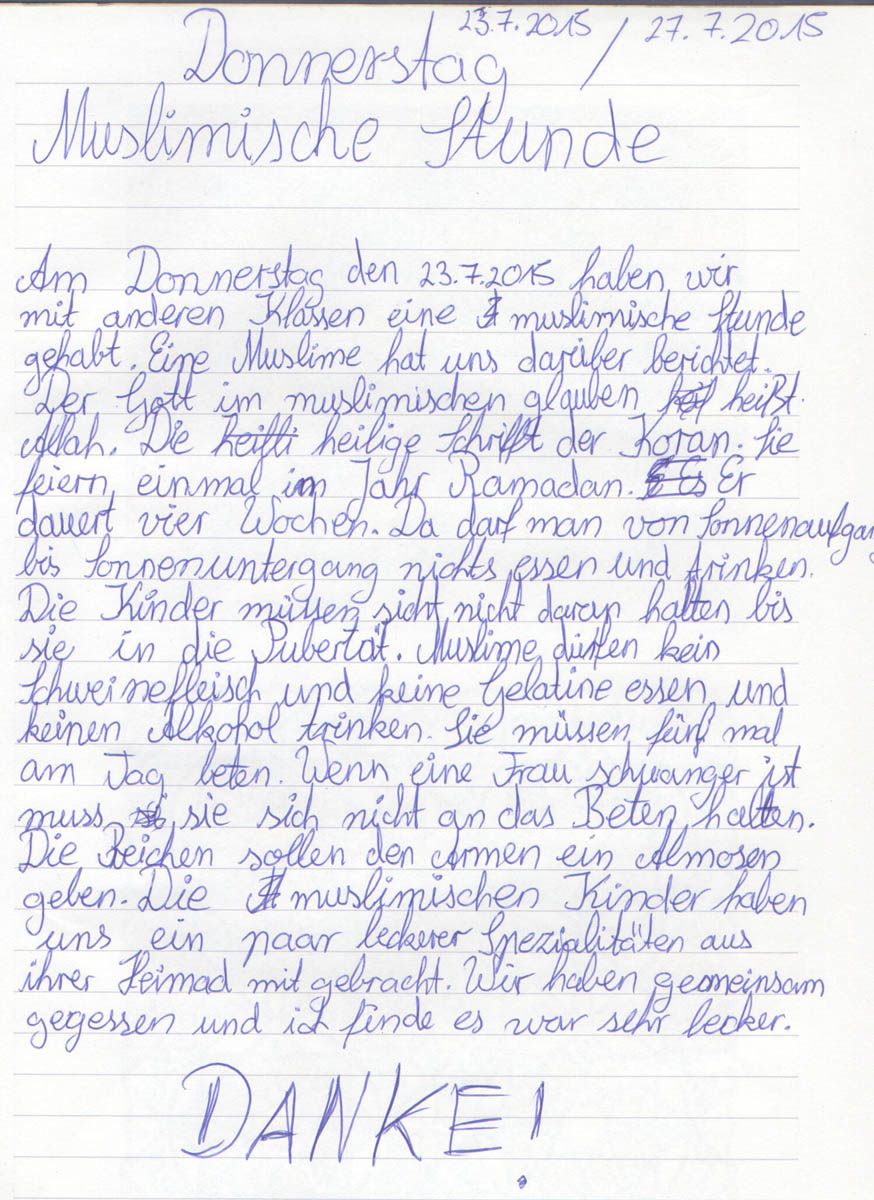 23.7.2015 / 27.7.2015
Donnerstag
Muslimische Stunde
Am Donnerstag den 23.7.2015 haben wir
mit anderen Klassen eine muslimische Stunde
gehabt. Eine Muslime hat uns darüber berichtet.
Der Gott im muslimischen glauben heißt
Allah. Die heilige Schrift der Koran. Sie
feiern einmal im Jahr Ramadan. Er
dauert vier Wochen. Da darf man von Sonnenaufgang
bis Sonnenuntergang nichts essen und trinken.
Die Kinder müssen sicht nicht daran halten bis
sie in die Pubertät. Muslime dürfen kein
Schweinefleisch und keine Gelatine essen und
keinen Alkohol trinken. Sie müssen fünf mal
am Tag beten. Wenn eine Frau schwanger ist
muss sie sich nicht an das Beten halten.
Die Reichen sollen den Armen ein Almosen
geben. Die muslimischen Kinder haben
uns ein paar leckerer Spezialitäten aus
ihrer Heimad mit gebracht. Wir haben gemeinsam
gegessen und ich finde es war sehr lecker.
DANKE!